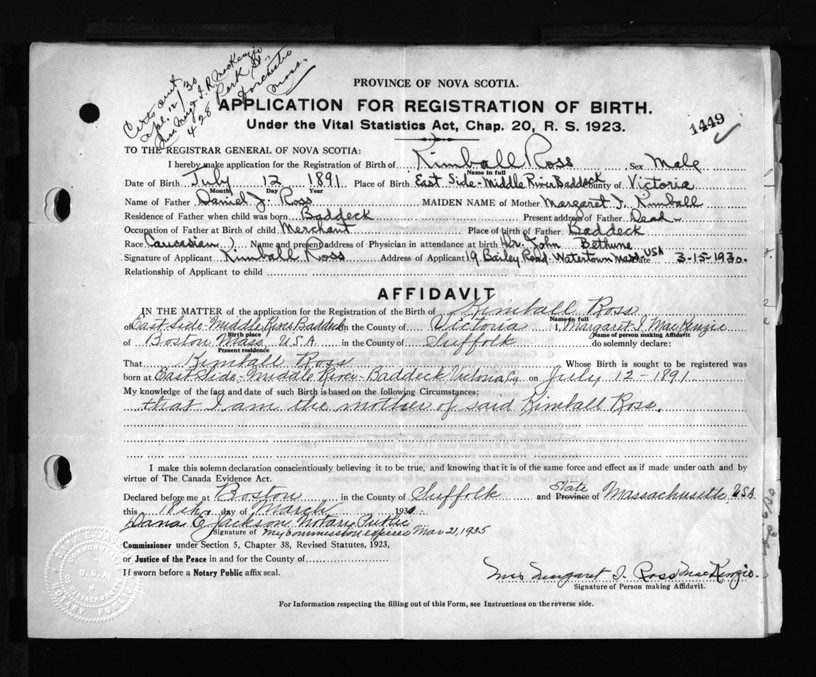 Cert. sent
Apl. 12/30
Mrs Margt I. R. McKenzie
428 Park St.
Dorchester
Mass.
PROVINCE OF NOVA SCOTIA.
APPLICATION FOR REGISTRATION OF BIRTH.
Under the Vital Statistics Act, Chap. 20, R. S. 1923.
1449
TO THE REGISTRAR GENERAL OF NOVA SCOTIA:
I hereby make application for the Registration of Birth of Kimball Ross Sex Male
Name in full
Date of Birth July 12 1891 Place of Birth East Side-Middle River Baddeck County of Victoria
Month Day Year
Name of Father Daniel J. Ross MAIDEN NAME of Mother Margaret I. Kimball
Residence of Father when child was born Baddeck Present address of Father Dead
Occupation of Father at Birth of child Merchant Place of birth of Father Baddeck
Race (Caucasian) Name and present address of Physician in attendance at birth Dr. John Bethune
Signature of Applicant Kimball Ross Address of Applicant 19 Bailey Road-Watertown Mass USA Date 3-15-1930.
Relationship of Applicant to child
AFFIDAVIT
IN THE MATTER of the application for the Registration of the Birth of Kimball Ross
Name in full
of East Side-Middle River Baddeck in the County of Victoria I, Margaret I. MacKenzie
Birth place Name of person making Affidavit
of Boston Mass. U.S.A in the County of Suffolk do solemnly declare:
Present residence
That Kimball Ross Whose Birth is sought to be registered was
born at East Side-Middle River-Baddeck Victoria Co. on July 12-1891
My knowledge of the fact and date of such Birth is based on the following Circumstances:
that I am the mother of said Kimball Ross.
I make this solemn declaration conscientiously believing it to be true, and knowing that it is of the same force and effect as if made under oath and by
virtue of The Canada Evidence Act.
Declared before me at Boston in the County of Suffolk and State Province of Massachusetts, USA
this day of March 1930
Dana E. Jackson Notary Public
Signature of My commission expires Mar 21, 1935
Commissioner under Section 5, Chapter 38, Revised Statutes, 1923,
or Justice of the Peace in and for the County of
If sworn before a Notary Public affix seal.
Mrs Margaret I. Ross MacKenzie.
Signature of Person making Affidavit.
For Information respecting the filling out of this Form, see Instructions on the reverse side.